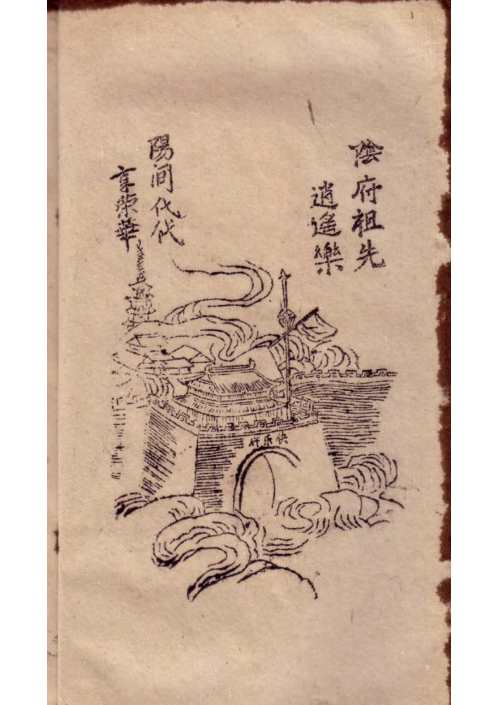 陰府祖先
逍遥樂
陽间代代
享荣華
快乐